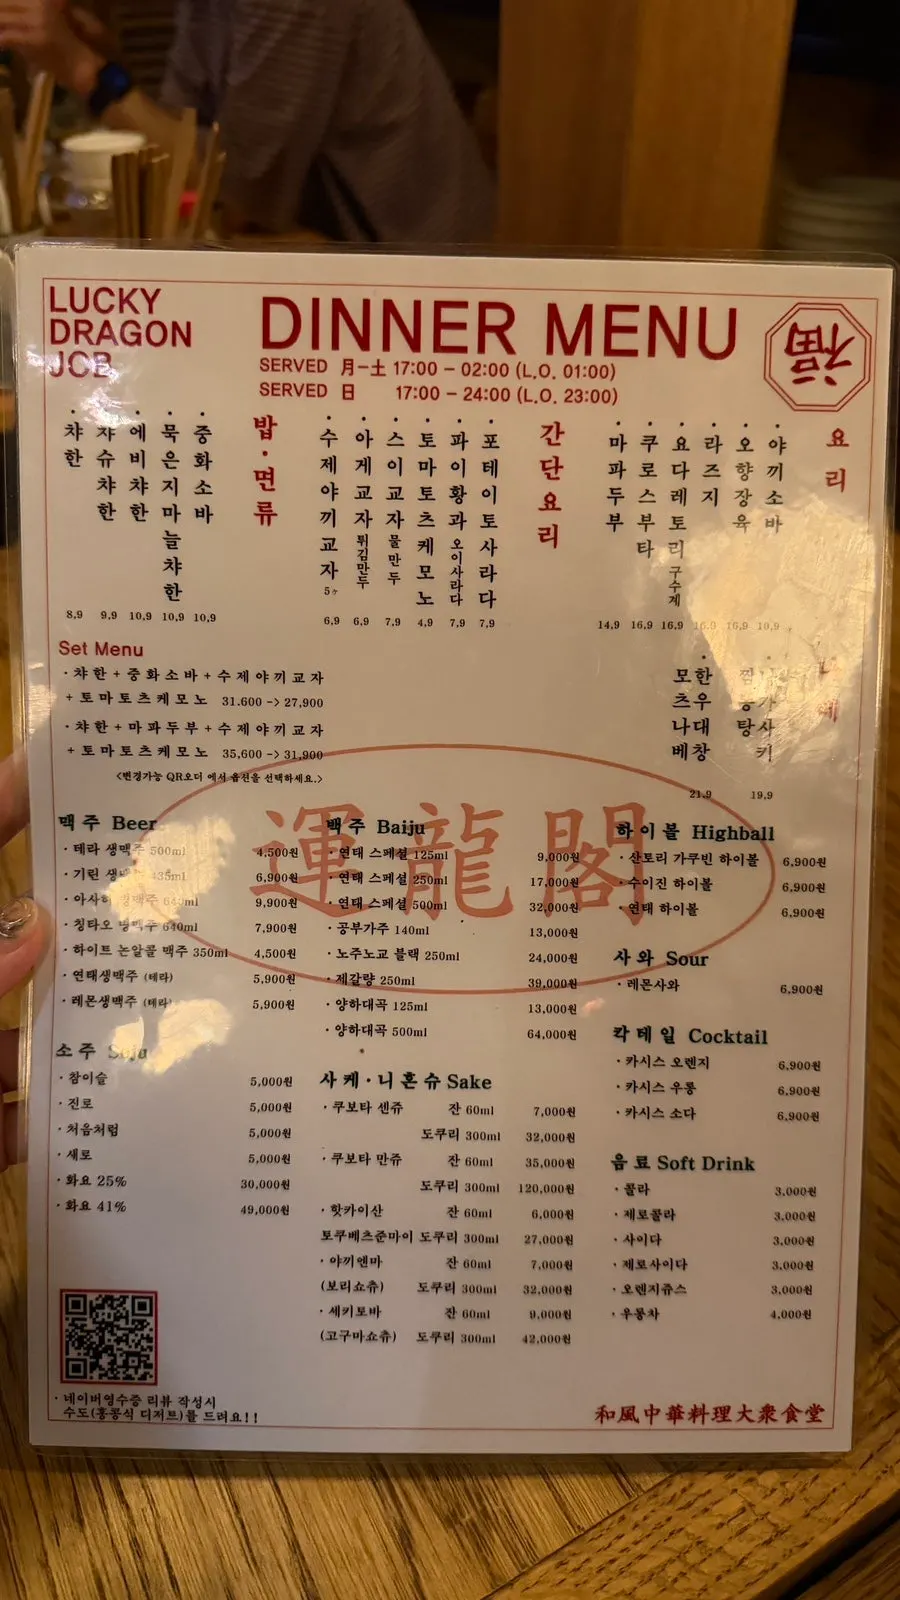 LUCKY
DRAGON
JCB
DINNER MENU
SERVED 月-土 17:00 - 02:00 (L.O. 01:00)
SERVED 日 17:00 - 24:00 (L.O. 23:00)
福
요리
·야끼소바 10,9
·오향장육 16,9
·라즈지 16,9
·요다레토리 구수계 16,9
·쿠로스부타 16,9
·마파두부 14,9
간단요리
·포테이토사라다 7,9
·파이황과 오이사라다 7,9
·토마토츠케모노 4,9
·스이교자 물만두 7,9
·아게교자 튀김만두 6,9
·수제야끼교자 5ヶ 6,9
밥·면류
·중화소바 10,9
·묵은지마늘챠한 10,9
·에비챠한 10,9
·챠슈챠한 9,9
·챠한 8,9
짬뽕탕 19,9
모츠나베
한우대창 21,9
Set Menu
·챠한+중화소바+수제야끼교자
+토마토츠케모노 31.600 -> 27,900
·챠한+마파두부+수제야끼교자
+토마토츠케모노 35,600 -> 31,900
<변경가능 QR오더 에서 옵션을 선택하세요.>
運龍閣
맥주 Beer
·테라 생맥주 500ml 4,500원
·기린 생맥주 435ml 6,900원
·아사히 병맥주 640ml 9,900원
·칭타오 병맥주 640ml 7,900원
·하이트 논알콜 맥주 350ml 4,500원
·연태생맥주 (테라) 5,900원
·레몬생맥주 (테라) 5,900원
소주 Soju
·참이슬 5,000원
·진로 5,000원
·처음처럼 5,000원
·새로 5,000원
·화요 25% 30,000원
·화요 41% 49,000원
백주 Baiju
·연태 스페셜 125ml 9,000원
·연태 스페셜 250ml 17,000원
·연태 스페셜 500ml 32,000원
·공부가주 140ml 13,000원
·노주노교 블랙 250ml 24,000원
·제갈량 250ml 39,000원
·양하대곡 125ml 13,000원
·양하대곡 500ml 64,000원
사케·니혼슈 Sake
·쿠보타 센쥬 잔 60ml 7,000원
도쿠리 300ml 32,000원
·쿠보타 만쥬 잔 60ml 35,000원
도쿠리 300ml 120,000원
·핫카이산 잔 60ml 6,000원
토쿠베츠준마이 도쿠리 300ml 27,000원
·야끼엔마 잔 60ml 7,000원
(보리쇼츄) 도쿠리 300ml 32,000원
·세키토바 잔 60ml 9,000원
(고구마쇼츄) 도쿠리 300ml 42,000원
하이볼 Highball
·산토리 가쿠빈 하이볼 6,900원
·수이진 하이볼 6,900원
·연태 하이볼 6,900원
사와 Sour
·레몬사와 6,900원
칵테일 Cocktail
·카시스 오렌지 6,900원
·카시스 우롱 6,900원
·카시스 소다 6,900원
음료 Soft Drink
·콜라 3,000원
·제로콜라 3,000원
·사이다 3,000원
·제로사이다 3,000원
·오렌지쥬스 3,000원
·우롱차 4,000원
·네이버영수증 리뷰 작성시
수도(홍콩식 디저트)를 드려요!!
和風中華料理大衆食堂